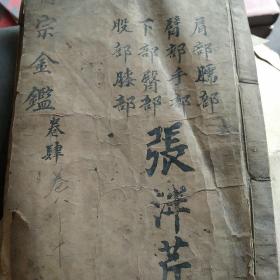 肩部臑部
臂部手部
下部臀部
股部膝部
張洋芹
宗金鑑卷肆